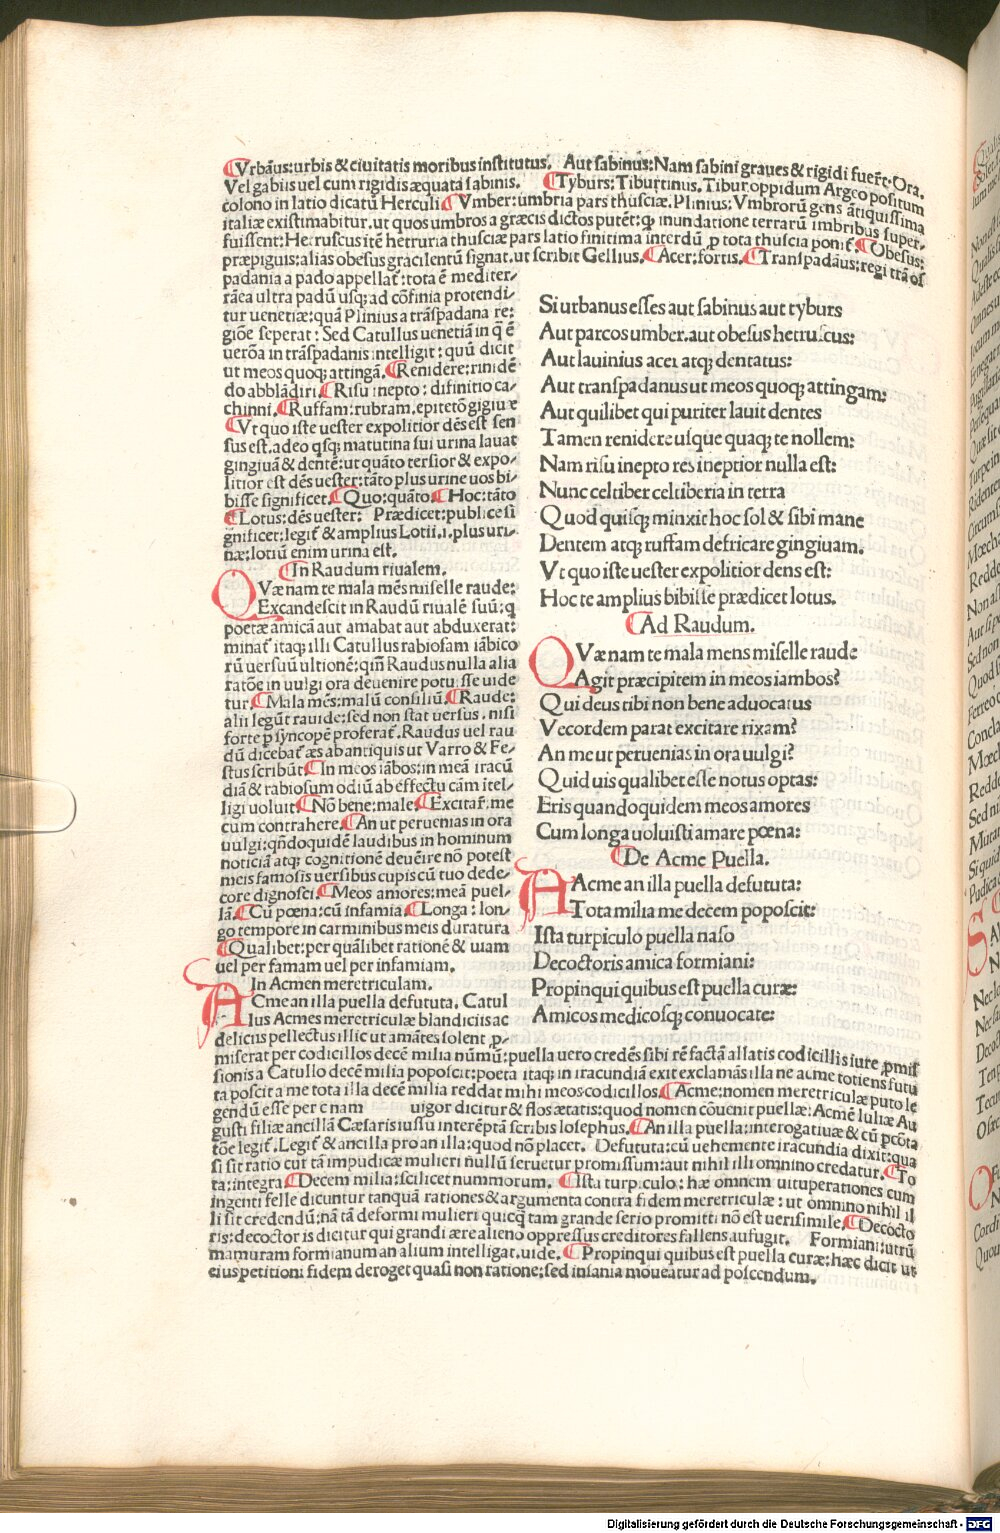 ¶Vrbāus: urbis & ciuitatis moribus institutus. Aut sabinus: Nam sabini graues & rigidi fuerūt. Ora.
Vel gabiis uel cum rigidis æquata sabinis. ¶Tyburs: Tiburtinus. Tibur oppidum Argeo positum
colono in latio dicatū Herculi ¶Vmber: umbria pars thusciæ. Plinius: Vmbrorū gens ātiquissima
italiæ existimabitur. ut quos umbros a græcis dictos putēt: ꝙ inundatione terrarū imbribus super-
fuissent: Hetruscus itē hetruria thusciæ pars latio finitima interdū ꝓ tota thuscia poniť. ¶Obesus:
præpiguis: alias obesus gracilentū signat. ut scribit Gellius. ¶Acer: fortis. ¶Transpadāus: regi trā os
padania a pado appellať: tota ē mediter-
rāea ultra padū usq; ad cōfinia protendi-
tur uenetiæ: quā Plinius a trāspadana re-
giōe seperat: Sed Catullus uenetiā in q̄ ē
uerōa in trāspadanis intelligit: quū dicit
ut meos quoq; attingā. ¶Renidere: rinidē
do abblādiri. ¶Risu inepto: difinitio ca-
chinni. ¶Ruffam: rubram. epitetō gigiuæ
¶Vt quo iste uester expolitior dēs est sen
sus est. adeo qsq; matutina sui urina lauat
gingiuā & dentē: ut quāto tersior & expo-
litior est dēs uester: tāto plus urine uos bi-
bisse significet. ¶Quo: quāto. ¶Hoc: tāto
¶Lotus: dēs uester: Prædicet: publice si
gnificet: legiť & amplius Lotii. i. plus uri-
næ: lotiū enim urina est.
¶In Raudum riualem.
QVæ nam te mala mēs miselle raude:
Excandescit in Raudū riualē suū: q
poetæ amicā aut amabat aut abduxerat:
minať itaq; illi Catullus rabiosam iābico
rū uersuū ultionē: qm̄ Raudus nulla alia
ratōe in uulgi ora deuenire potuisse uide
tur. ¶Mala mēs: malū consiliū. ¶Raude:
alii legūt rauide: sed non stat uersus. nisi
forte p syncopē proferať. Raudus uel rau
dū dicebať æs ab antiquis ut Varro & Fe-
stus scribūt ¶In meos iābos: in meā iracū
diā & rabiosum odiū ab effectu cām itel-
ligi uoluit ¶Nō bene: male. ¶Excitař: me
cum contrahere. ¶An ut peruenias in ora
uulgi: qn̄doquidē laudibus in hominum
noticiā atq; cognitionē deuēire nō potest
meis famosis uersibus cupis cū tuo dede-
core dignosci. ¶Meos amores: meā puel-
lā. ¶Cū pœna: cū infamia. ¶Longa: lon-
go tempore in carminibus meis duratura
¶Qualibet: per quālibet rationē & uiam
uel per famam uel per infamiam.
In Acmen meretriculam.
ACme an illa puella defututa. Catul
lus Acmes meretriculæ blandiciis ac
deliciis pellectus illic ut amātes solent ꝓ-
miserat per codicillos decē milia nūmū: puella uero credēs sibi rē factā allatis codicillis iure ꝓmis
sionis a Catullo decē milia poposcit: poeta itaq; in iracundiā exit exclamās illa ne acme totiens futu
ta poscit a me tota illa decē milia reddat mihi meos codicillos. ¶Acme: nomen meretriculæ puto le
gendū esse per c nam uigor dicitur & flos ætatis: quod nomen cōuenit puellæ: Acmē Iuliæ Au
gusti filiæ ancillā Cæsaris iussu interēptā scribis Iosephus. ¶An illa puella: interogatiuæ & cū pcōta
tōe legiť. Legiť & ancilla pro an illa: quod nō placet. Defututa: cū uehemente iracundia dixit: qua
si sit ratio cur tā impudicæ mulieri nullū seruetur promissum: aut nihil illi omnino credatur. ¶To
ta: integra ¶Decem milia: scilicet nummorum. ¶Ista turpiculo: hæ omnem uituperationes cum
ingenti felle dicuntur tanquā rationes & argumenta contra fidem meretriculæ: ut omnino nihil il
li sit credendū: nā tā deformi mulieri quicq̄ tam grande serio promitti nō est uerisimile. ¶Decocto
ris: decoctor is dicitur qui grandi ære alieno oppressus creditores fallens aufugit. Formiani: utrū
mamuram formianum an alium intelligat. uide. ¶Propinqui quibus est puella curæ: hæc dicit ut
eius petitioni fidem deroget quasi non ratione: sed insania moueatur ad poscendum.
Si urbanus esses aut sabinus aut tyburs
Aut parcos umber. aut obesus hetruscus:
Aut lauinius acer atq; dentatus:
Aut transpadanus ut meos quoq; attingam:
Aut quilibet qui puriter lauit dentes
Tamen renidere usque quaq; te nollem:
Nam risu inepto res ineptior nulla est:
Nunc celtiber celtiberia in terra
Quod quisq; minxit hoc sol& sibi mane
Dentem atq; ruffam defricare gingiuam.
Vt quo iste uester expolitior dens est:
Hoc te amplius bibisse prædicet lotus.
¶Ad Raudum.
QVæ nam te mala mens miselle raude
Agit præcipitem in meos iambos?
Qui deus tibi non bene aduocatus
Vecordem parat excitare rixam?
An me ut peruenias in ora uulgi?
Quid uis qualibet esse notus optas:
Eris quando quidem meos amores
Cum longa uoluisti amare pœna:
¶De Acme Puella.
AAcme an illa puella defututa:
Tota milia me decem poposcit:
Ista turpiculo puella naso
Decoctoris amica formiani:
Propinqui quibus est puella curæ:
Amicos medicosq; conuocate:
Digitalisierung gefördert durch die Deutsche Forschungsgemeinschaft - DFG